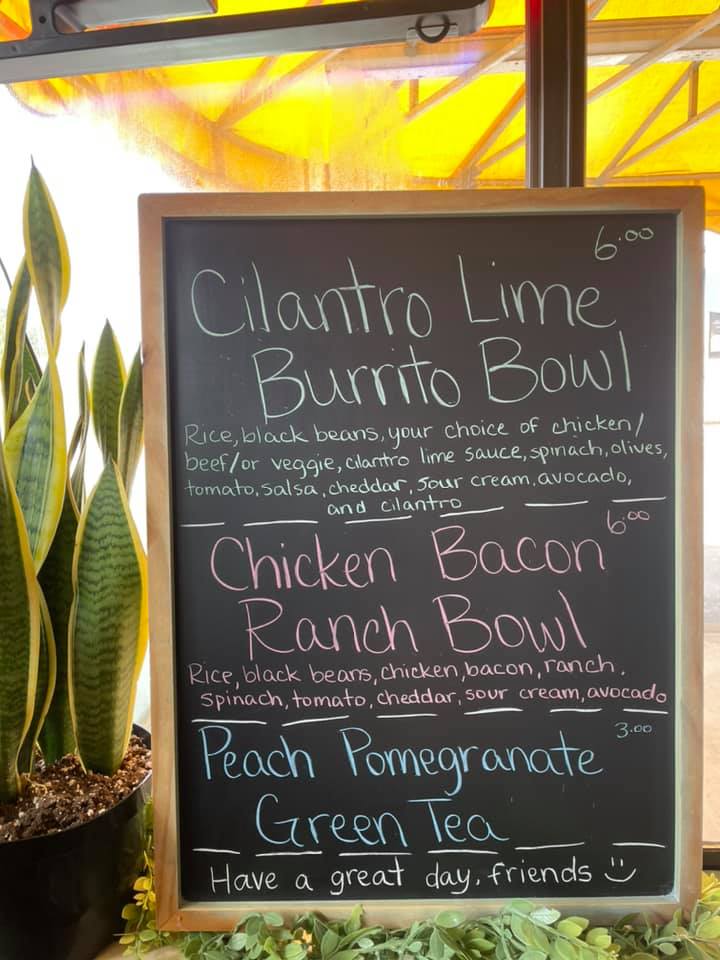 6.00
Cilantro Lime
Burrito Bowl
Rice, black beans, your choice of chicken/
beef/or veggie, cilantro lime sauce, spinach, olives,
tomato, salsa, cheddar, sour cream, avocado,
and cilantro
6.00
Chicken Bacon
Ranch Bowl
Rice, black beans, chicken, bacon, ranch,
spinach, tomato, cheddar, sour cream, avocado
3.00
Peach Pomegranate
Green Tea
Have a great day, friends :)